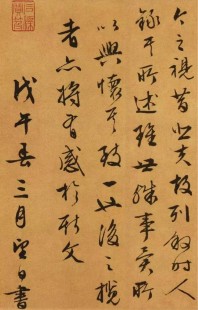 今之視昔悲夫故列敘時人
錄其所述雖世殊事異所
以興懷其致一也後之攬
者亦將有感於斯文
戊午春三月望日書